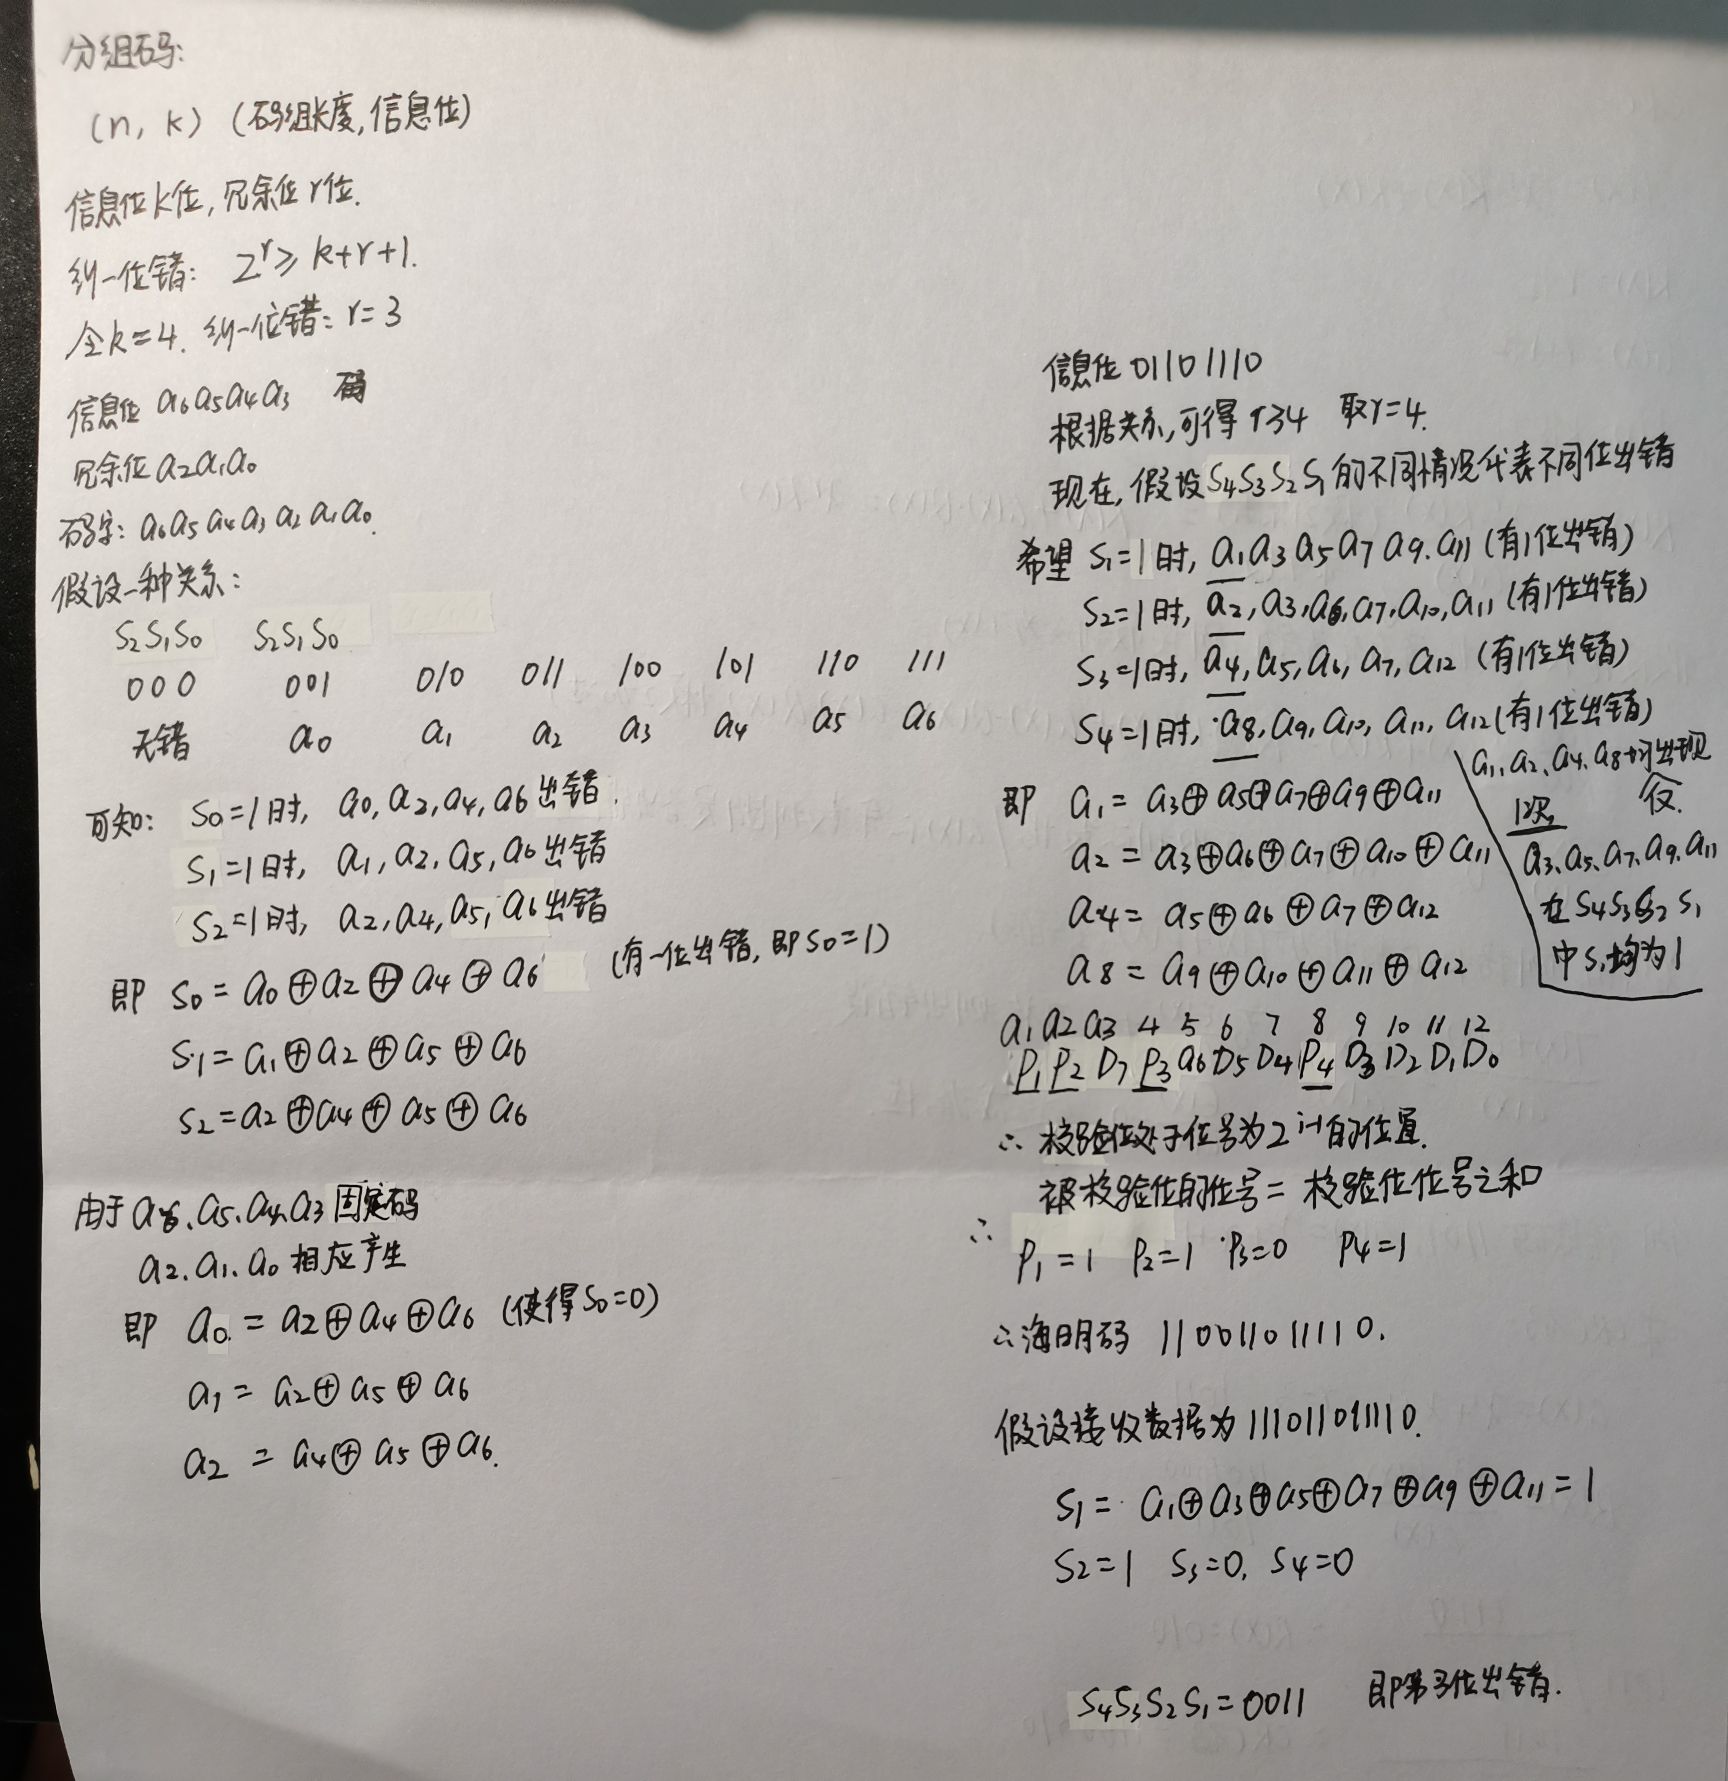 分组码:
(n, k) (码组长度,信息位)
信息位k位,冗余位r位.
纠一位错: 2^r ≥ k+r+1.
令k=4. 纠一位错: r=3
信息位 a6a5a4a3 码
冗余位a2a1a0
码字: a6a5a4a3a2a1a0.
假设一种关系:
S2S1S0 S2S1S0
000 001 010 011 100 101 110 111
无错 a0 a1 a2 a3 a4 a5 a6
可知: S0=1时, a0,a2,a4,a6出错.
S1=1时, a1,a2,a5,a6出错
S2=1时, a2,a4,a5,a6出错
即 S0=a0⊕a2⊕a4⊕a6 (有一位出错,即S0=1)
S1=a1⊕a2⊕a5⊕a6
S2=a2⊕a4⊕a5⊕a6
由于a6、a5、a4、a3固定码
a2、a1、a0相应产生
即 a0=a2⊕a4⊕a6 (使得S0=0)
a1=a2⊕a5⊕a6
a2=a4⊕a5⊕a6.
信息位01101110
根据关系,可得 r≥4 取r=4.
现在,假设S4S3S2S1的不同情况代表不同位出错
希望 S1=1时, a1a3a5a7a9.a11(有1位出错)
S2=1时, a2,a3,a6,a7,a10,a11(有1位出错)
S3=1时, a4,a5,a6,a7,a12(有1位出错)
S4=1时, a8,a9,a10,a11,a12(有1位出错)
a1、a2、a4、a8均出现
仅
1次,
a3、a5、a7、a9、a11
在S4S3S2S1
中S1均为1
即 a1=a3⊕a5⊕a7⊕a9⊕a11
a2=a3⊕a6⊕a7⊕a10⊕a11
a4=a5⊕a6⊕a7⊕a12
a8=a9⊕a10⊕a11⊕a12
a1a2a3 4 5 6 7 8 9 10 11 12
P1P2D7P3a6D5D4P4D3D2D1D0
∴ 校验位处于位号为2^i-1的位置.
被校验位的位号=校验位位号之和
∴ P1=1 P2=1 P3=0 P4=1
∴海明码 110011011110.
假设接收数据为111011011110.
S1=a1⊕a3⊕a5⊕a7⊕a9⊕a11=1
S2=1 S3=0, S4=0
S4S3S2S1=0011 即第3位出错.